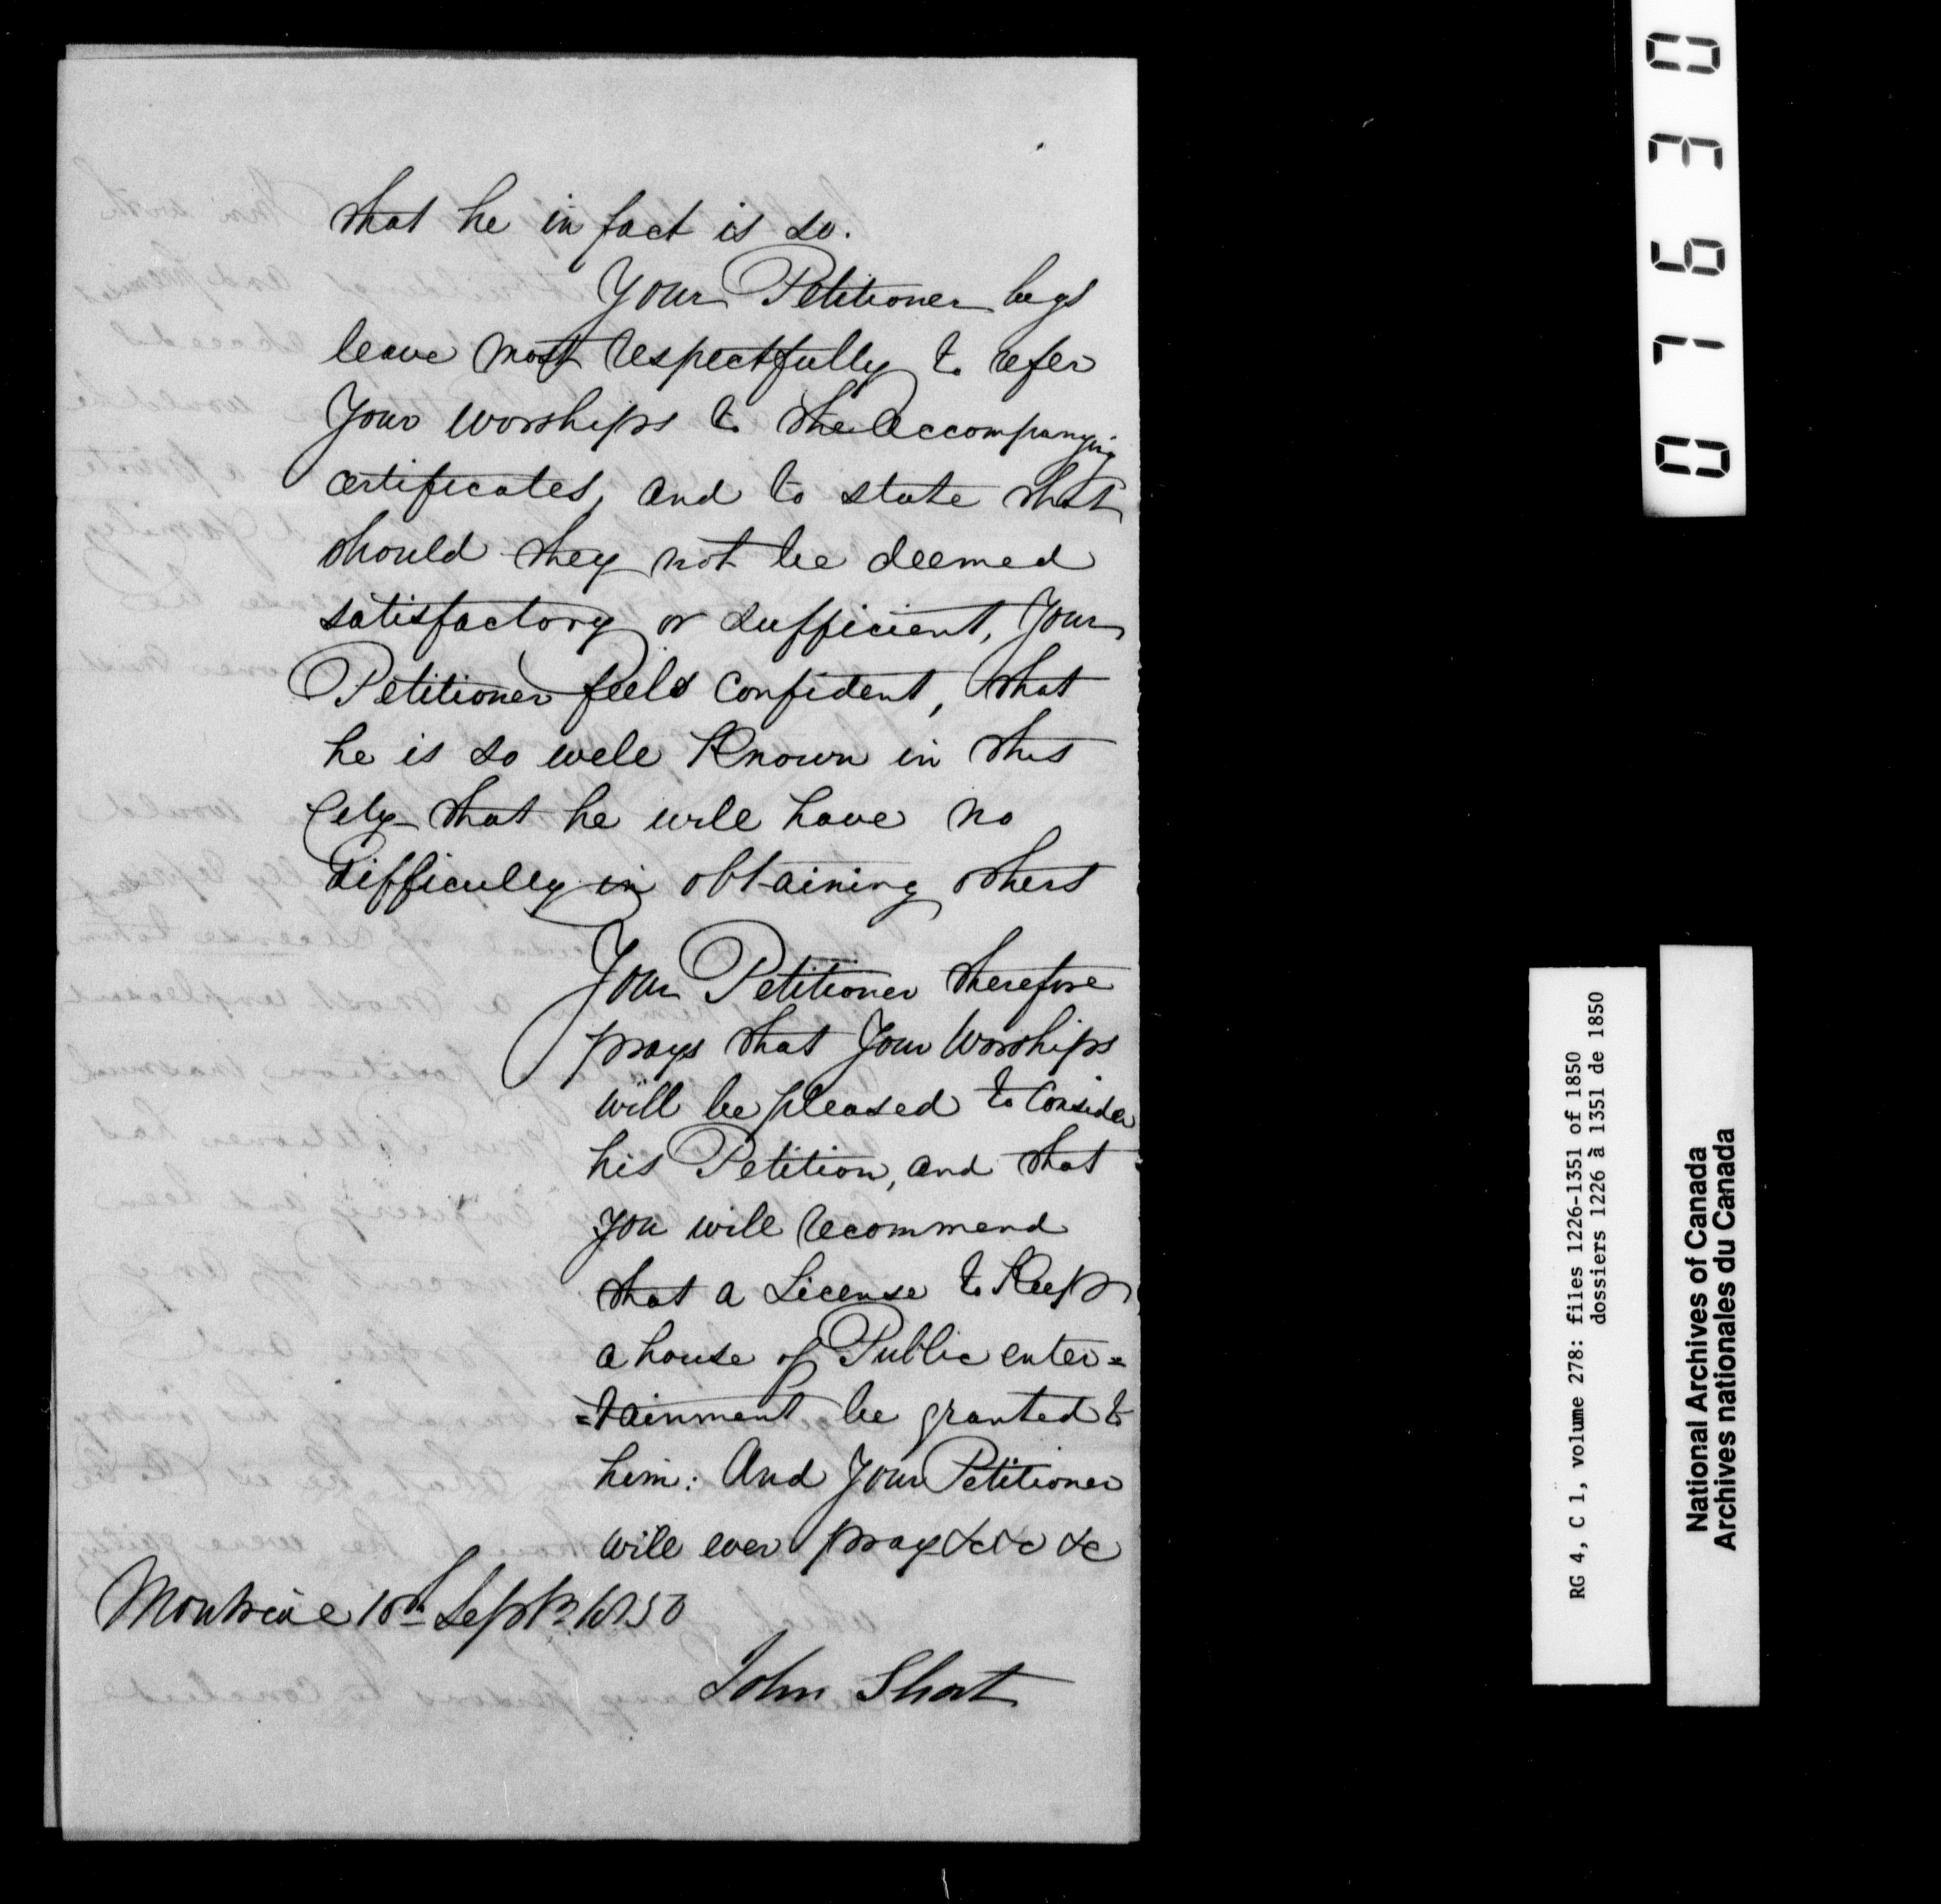 that he in fact is so.
Your Petitioner begs
leave most respectfully to refer
Your worships to the accompanying
certificates, and to state that
should they not be deemed
satisfactory or sufficient, Your
Petitioner feels confident, that
he is so well Known in this
City that he will have no
difficulty in obtaining others
Your Petitioner therefore
prays that Your Worships
will be pleased to Consider
his Petition, and that
you will recommend
that a License to Keep
a house of Public enter=
=tainment be granted to
him: And Your Petitioner
will ever pray &c &c &c
Montreal 10th Septr. 1850
John Short
076630
RG 4, C 1, volume 278: files 1226-1351 of 1850
dossiers 1226 à 1351 de 1850
National Archives of Canada
Archives nationales du Canada